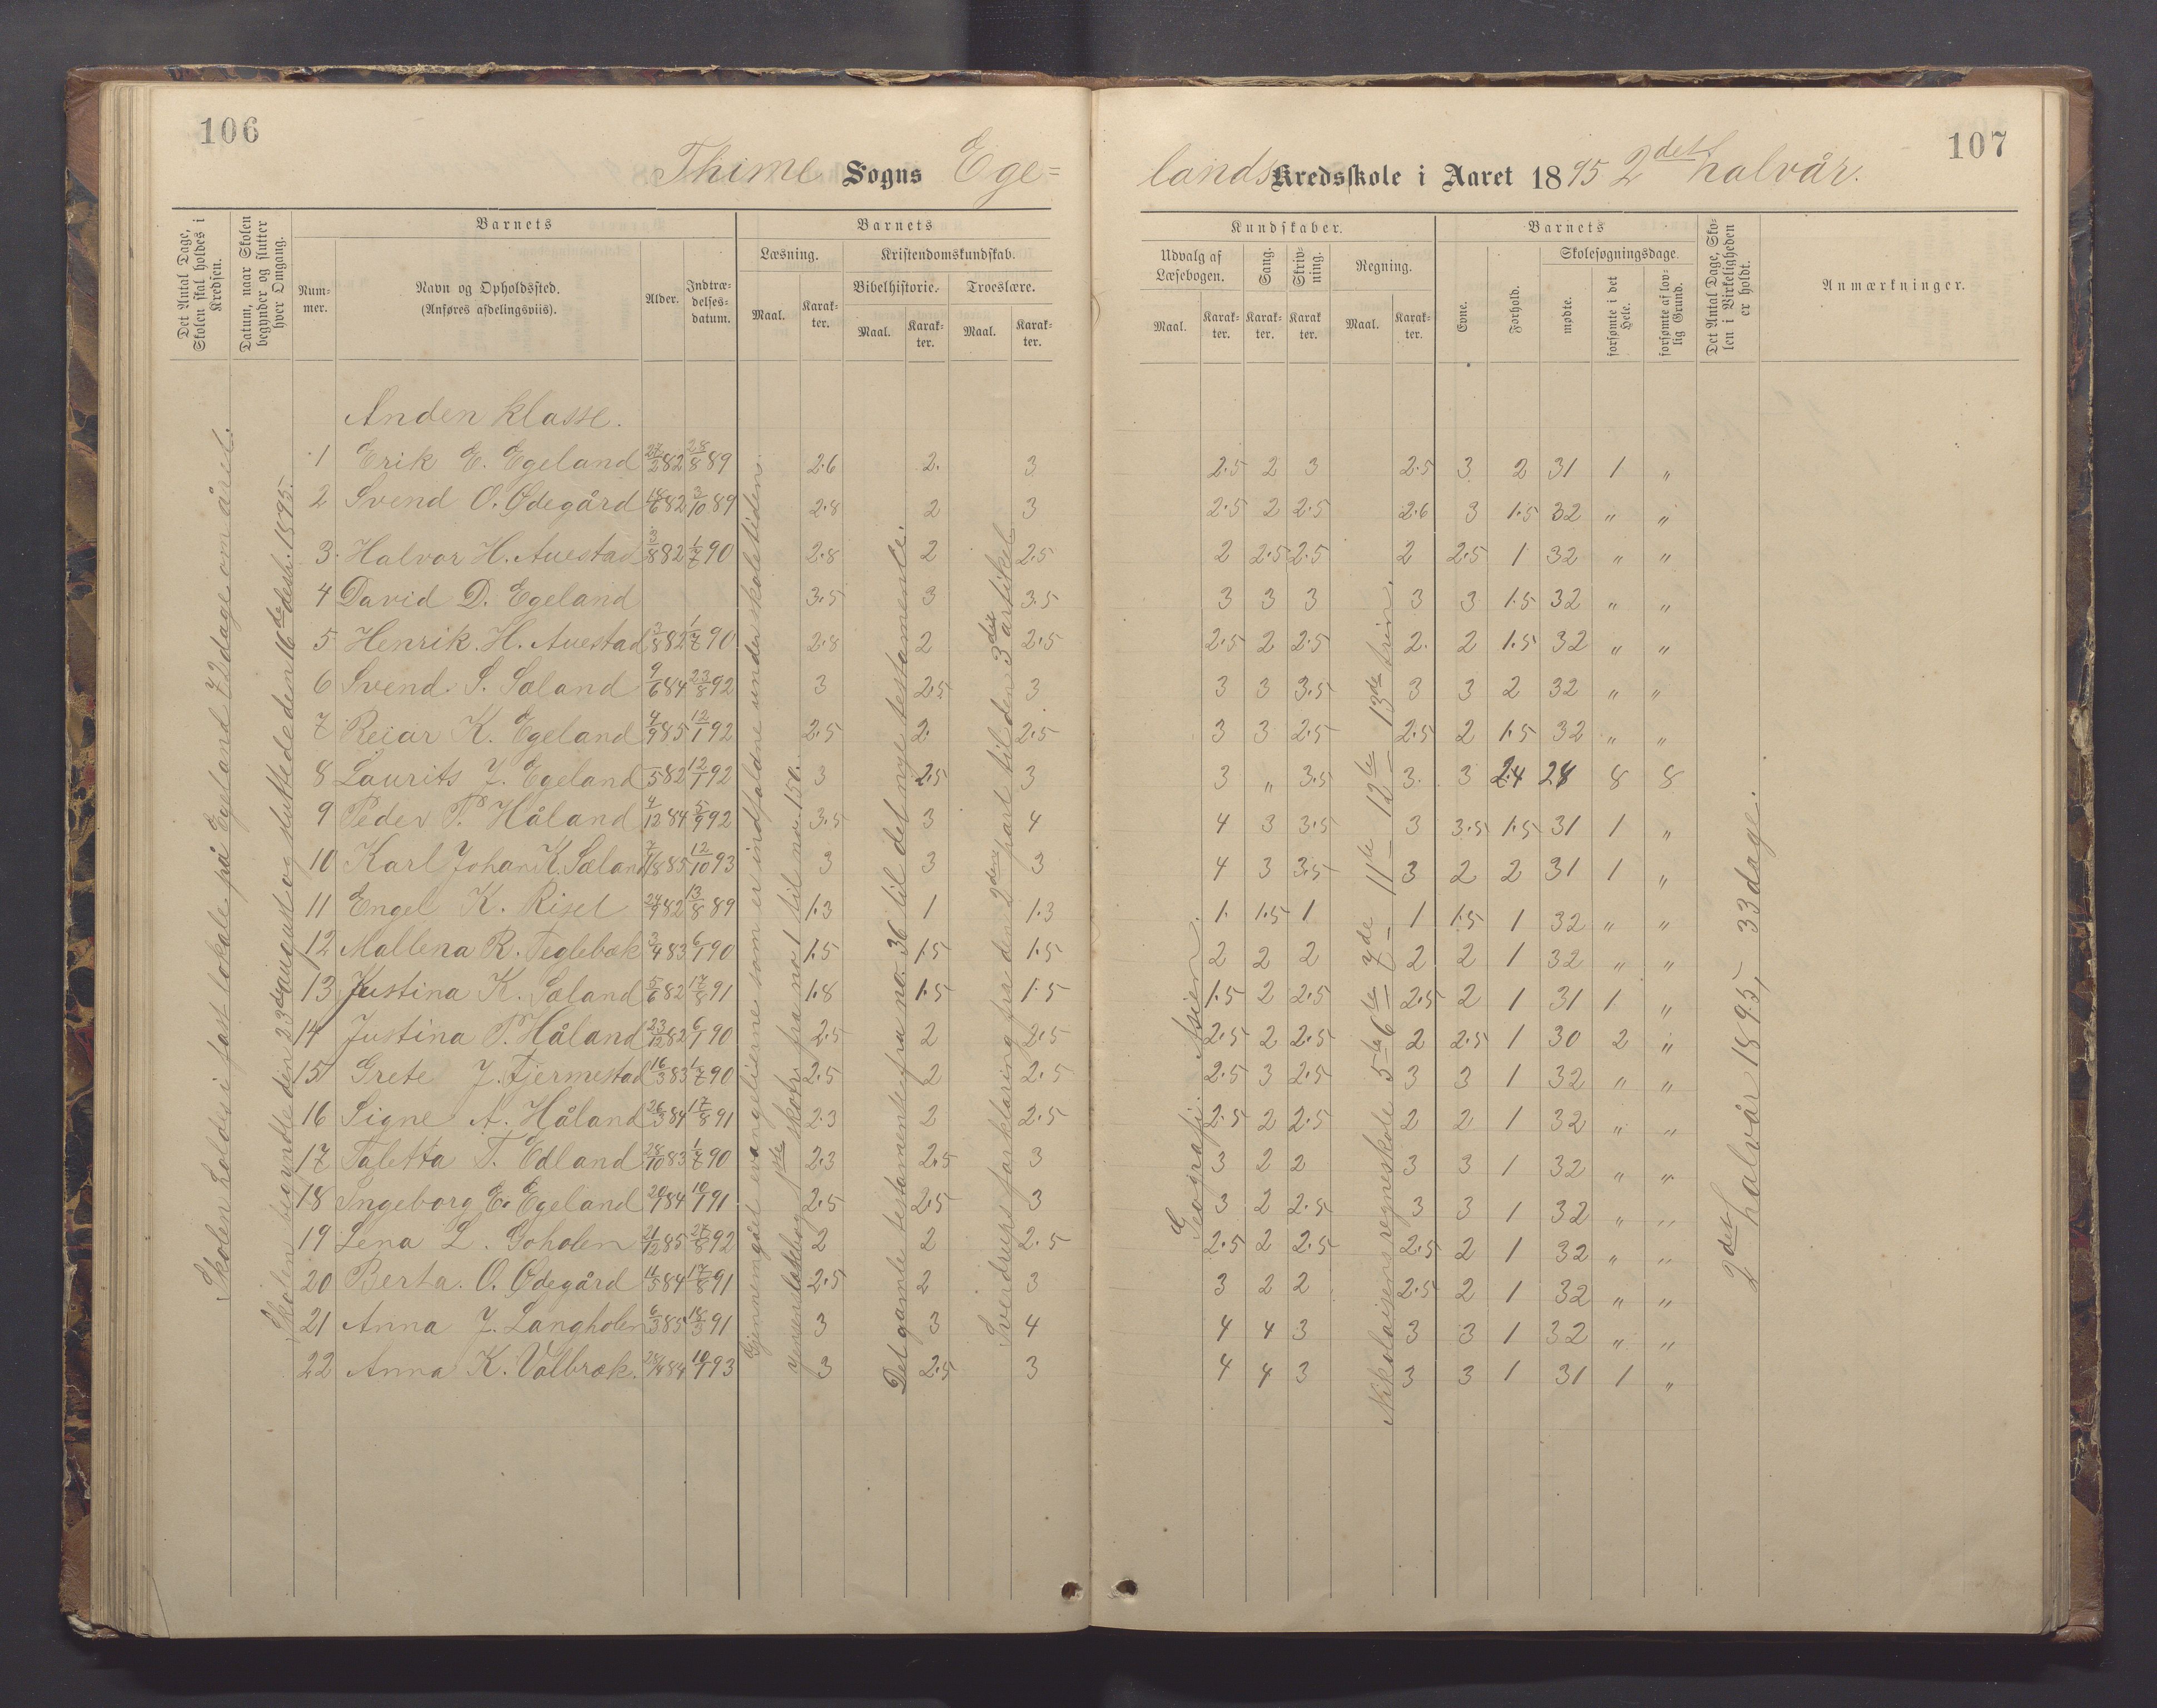 106
107
Thime Sogns Ege=
lands Kredsskole i Aaret 1895 2det halvår.
Det Antal Dage, Skolen skal holdes i Kredsen.
Datum, naar Skolen begynder og slutter hver Omgang.
Barnets
Nummer.
Navn og Opholdssted.
(Anføres afdelingsviis).
Alder.
Indtrædelsesdatum.
Barnets
Læsning.
Maal.
Karakter.
Kristendomskundskab.
Bibelhistorie.
Maal.
Karakter.
Troeslære.
Maal.
Karakter.
Kundskaber.
Udvalg af Læsebogen.
Maal.
Karakter.
Sang.
Karakter.
Skrivning.
Karakter
Regning.
Maal.
Karakter.
Barnets
Evne.
Forhold.
Skolesøgningsdage.
mødte.
forsømte i det Hele.
forsømte af lovlig Grund.
Det Antal Dage, Skolen i Virkeligheden er holdt.
Anmærkninger.
Skolen holdes i fast lokale på Egeland 72 dage om året.
Skolen begyndte den 23de august og sluttede den 16de desbr. 1895.
Gjennemgået evangelierne som er indfaldne under skoletiden.
Jensens læsebog 1ste skoletr. fra no. 1 til no. 150.
Det gamle testamente fra no. 36 til det nye testamente.
Sverdrups forklaring fra den 2den part til den 3die artikel
Geografi: Asien.
Nikolaisens regneskole 5te 6te 7de 11te 12te 13de trin.
2det halvår 1895, 33 dage.
Anden klasse.
1 Erik E. Egeland 27/2 82 28/8 89 2.6 2. 3 2.5 2 3 2.5 3 2 31 1 "
2 Svend O. Ødegård 18/6 82 3/10 89 2.8 2 3 2.5 2 2.5 2.6 3 1.5 32 " "
3. Halvor H. Auestad 82 1/7 90 2.8 2 2.5 2 2.5 2.5 2 2.5 1 32 " "
4 David D. Egeland 3.5 3 3.5 3 3 3 3 3 1.5 32 " "
5 Henrik H. Auestad 3/8 82 1/7 90 2.8 2 2.5 2.5 2 2.5 2. 2 1.5 32 " "
6 Svend S. Sæland 9/6 84 23/8 92 3 2.5 3 3 3 3.5 3 3 2 32 " "
7 Reiar K. Egeland 4/9 85 12/1 92 2.5 2. 2.5 3 3 2.5 2.5 2 1.5 32 " "
8 Laurits J. Egeland 5 82 12/1 92 3 2.5 3 3 " 3.5 3. 3 2.4 28 8 8
9 Peder P. Håland 4/12 84 5/9 92 3.5 3 4 4 3 3.5 3 3.5 1.5 31 1 "
10 Karl Johan K. Sæland 85 12/10 93 3 3 3 4 3 3.5 3 2 2 31 1 "
11 Engel K. Risel 24/9 82 13/8 89 1.3 1 1.3 1. 1.5 1 1 1.5 1 32 " "
12 Mallena R. Teglebæk 3/9 83 6/1 90 1.5 1.5 1.5 2 2 2 2 2 1 32 " "
13 Justina K. Sæland 5/6 82 17/8 91 1.8 1.5 1.5 1.5 2 2.5 2.5 2 1 31 1 "
14 Justina P. Håland 23/12 82 6/1 90 2.5 2 2.5 2.5 2 2.5 2 2.5 1 30 2 "
15 Grete J. Fjermestad 16/3 83 1/7 90 2.5 2 2.5 2.5 3 2.5 3 3 1 32 " "
16 Signe A. Håland 26/3 84 17/8 91 2.3 2 2.5 2.5 2 2.5 2 2 1 32 " "
17 Taletta T. Edland 28/10 83 1/7 90 2.3 2.5 3 3 2 2 3 3 1 32 " "
18 Ingeborg E. Egeland 84 10/1 91 2.5 2.5 3 3 2 2.5 3 3 1 32 " "
19 Lena L. Goholen 21/12 85 27/8 92 2 2 2.5 2.5 2 2.5 2.5 2 1 32 " "
20 Berta O. Ødegård 84 17/8 91 2.5 2 3 3 2 2 2.5 2 1 32 " "
21 Anna J. Langholen 6/3 85 18/3 91 3 3 4 4 4 3 3 3 1 32 " "
22 Anna K. Valbræk. 84 10/1 93 3 2.5 3 4 4 3 3 3 1 31 1 "